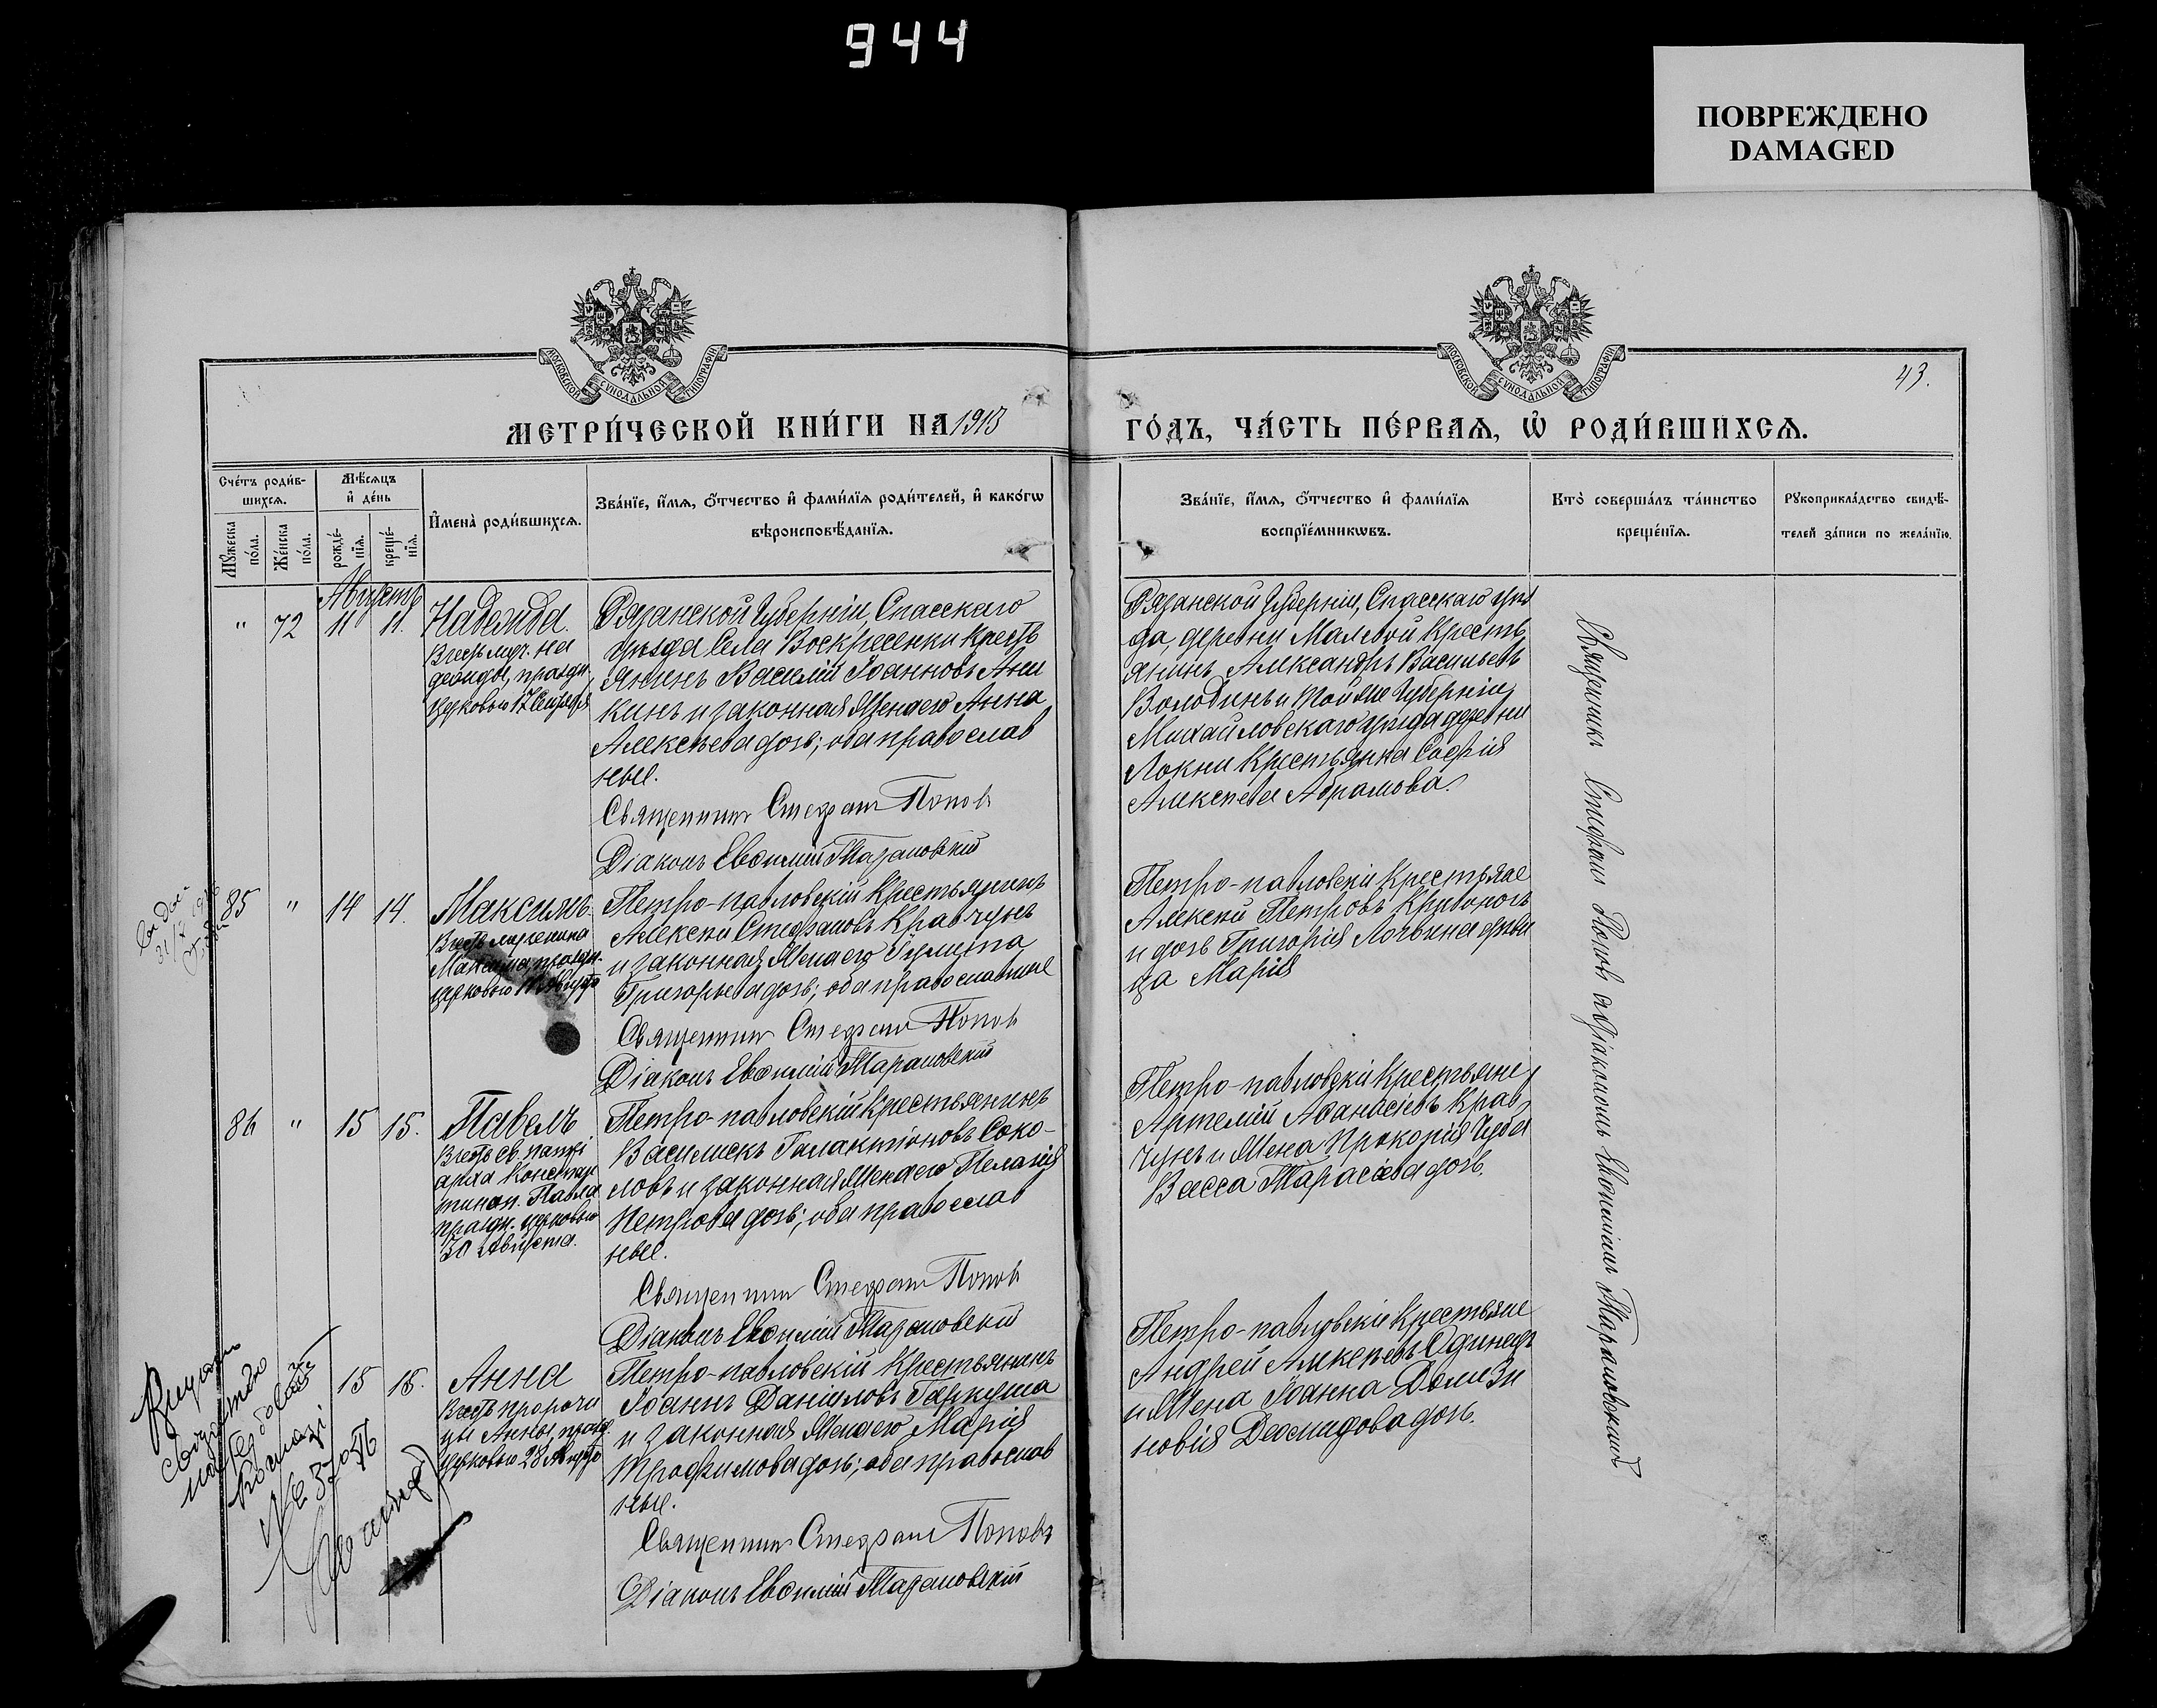 944
ПОВРЕЖДЕНО
DAMAGED
МОСКОВСКОЙ СѴНОДАЛЬНОЙ ТИПОГРАФІИ
МОСКОВСКОЙ СѴНОДАЛЬНОЙ ТИПОГРАФІИ
43.
МЕТРИ́ЧЕСКОЙ КНИ́ГИ НА 1913
ГО́ДЪ, ЧА́СТЬ ПЕ́РВАЯ, Ѡ РОДИ́ВШИХСЯ.
Сче́тъ роди́в-
шихся.
Мѣ́сяцъ
и де́нь
Мꙋ́жеска
по́ла.
Же́нска
по́ла.
рожде́-
нїя.
креще́-
нїя.
Имена̀ роди́вшихся.
Зва́нїе, и́мя, о́тчество и фами́лїя роди́телей, и како́гѡ
вѣроисповѣ́данїя.
Зва́нїе, и́мя, о́тчество и фами́лїя
воспрїе́мникѡвъ.
Кто̀ соверша́лъ та́инство
креще́нїя.
Рꙋкоприкла́дство свидѣ́-
телей за́писи по жела́нїю.
Августъ
" 72 11 11.
Надежда.
Въ честь муч. На
дежды, праздн.
Церковью 17 Сентября
Рязанской Губерніи, Спасскаго
уѣзда Села Воскресенки Кресть
янинъ Василій Іоанновъ Ани
кинъ и законная Жена его Анна
Алексѣева дочь; оба православ
ные.
Священникъ Стефанъ Поповъ
Діаконъ Евѳимій Тарановскій
Рязанской Губерніи, Спасскаго уѣз
да, деревни Малевой Кресть
янинъ Александръ Васильевъ
Володинъ и той же Губерніи
Михайловскаго уѣзда деревни
Локни Крестьянка Софія
Алексѣева Абрамова.
85 " 14 14.
Максимъ.
Въ честь мученика
Максима праздн.
Церковью Августа
Петро-павловскій Крестьянинъ
Алексѣй Стефановъ Кравчунъ
и законная Жена его Іулита
Григорьева дочь; оба православные
Священникъ Стефанъ Поповъ
Діаконъ Евѳимій Тарановскій
Петро-павловскіе Крестьяне
Алексѣй Петровъ Криворогъ
и дочь Григорія Логвина дѣви
ца Марія
86 " 15 15.
Павелъ
Въ честь св. патрі
арха Констан
тиноп. Павла
праздн. церковью
30 Августа.
Петро-павловскій Крестьянинъ
Василискъ Галактіоновъ Соко-
ловъ и законная Жена его Пелагія
Петрова дочь; оба православ
ные.
Священникъ Стефанъ Поповъ
Діаконъ Евѳимій Тарановскій
Петро-павловскіе Крестьяне
Артемій Аѳанасіевъ Крав
чунъ и Жена Прокопія Чуба
Васса Тарасіева дочь.
15 18.
Анна
Въ честь пророчи
цы Анны, празд.
Церковью 28 Августа
Петро-павловскій Крестьянинъ
Іоаннъ Даніиловъ Гаркуша
и законная Жена его Марія
Трофимова дочь; оба православ
ные.
Священникъ Стефанъ Поповъ
Діаконъ Евѳимій Тарановскій
Петро-павловскіе Крестьяне
Андрей Алексѣевъ Одинецъ
и Жена Іоанна Доли Зи
новія Деомидова дочь.
Священникъ Стефанъ Поповъ съ Діакономъ Евѳиміемъ Тарановскимъ